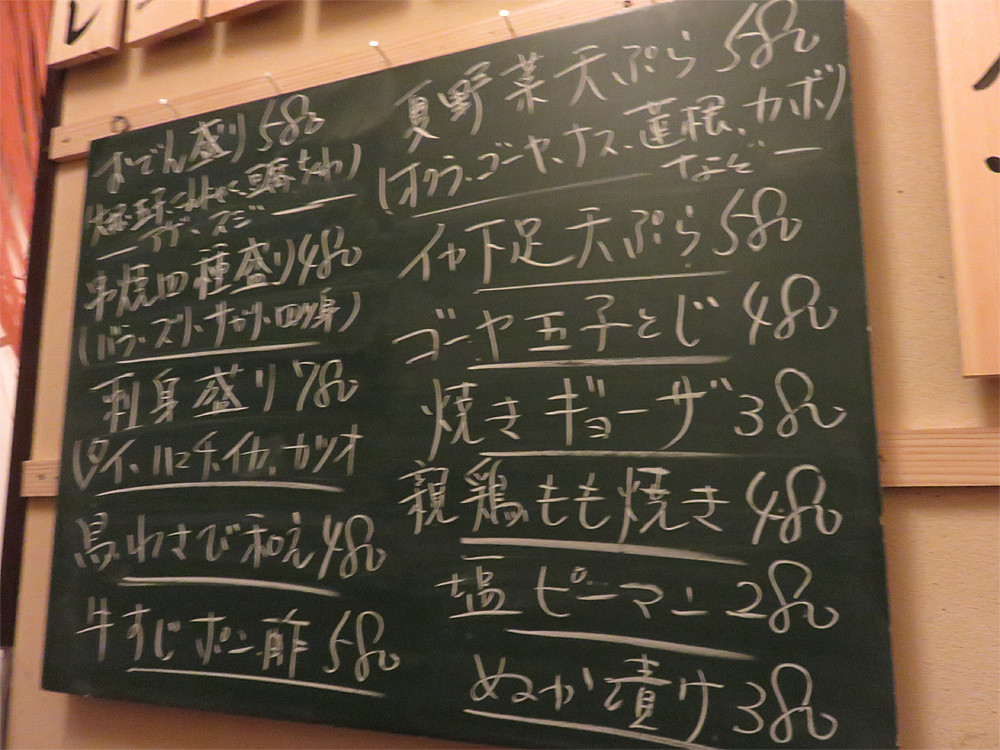 夏野菜天ぷら 580
(オクラ、ゴーヤ、ナス、蓮根、カボ)
なぞ
イカ下足天ぷら 580
ゴーヤ玉子とじ 480
焼きギョーザ 380
親鶏もも焼き 480
塩ピーマン 280
ぬか漬け 380
おでん盛り 580
(大根・玉子・こんにゃく、豆腐、ちくわ)
アゲ、スジ
串焼四種盛り 480
(バラ、ズリ、サガリ、四つ身)
刺身盛り 780
(タイ、ハマチ、イカ、カツオ
鳥わさび和え 480
牛すじポン酢 580